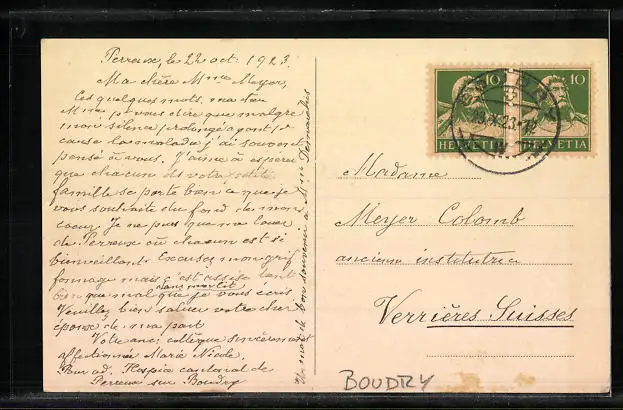 Perreux, le 22 oct. 1923.
Ma chère Mme Meyer,
Ces quelques mots,
Mme pr vous dire que malgré
mon silence prolongé ayant pr
cause la maladie, j'ai souvent
pensé à vous. J'aime à espérer
que chacun de votre petite
famille se porte bien ce que je
vous souhaite du fond de mon
coeur. Je ne puis que me louer
de Perreux où chacun est si
bienveillant. Excusez mon grif
fonnage mais c'est assise tant
bien que mal que je vous écris
Veuillez bien saluer votre cher
époux de ma part
Votre anc. collègue sincèrement
affectionnée Marie Nicole.
Pour ad. Hospice cantonal de
Perreux sur Boudry
bon souvenir à Mme
10 10
HELVETIA HELVETIA
BOUDRY
Madame
Meyer Colomb
ancienne institutrice
Verrières Suisses
BOUDRY